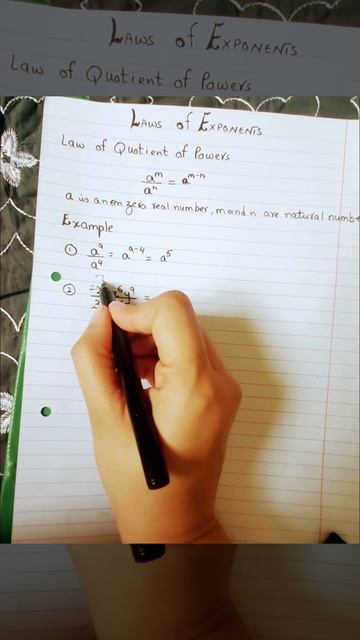 LAWS of EXPONENTS
Law of Quotient of Powers
LAWS of EXPONENTS
Law of Quotient of Powers
a^m/a^n = a^m-n
a is a non zero real number, m and n are natural numbe
Example
① a^9/a^4 = a^9-4 = a^5
② =